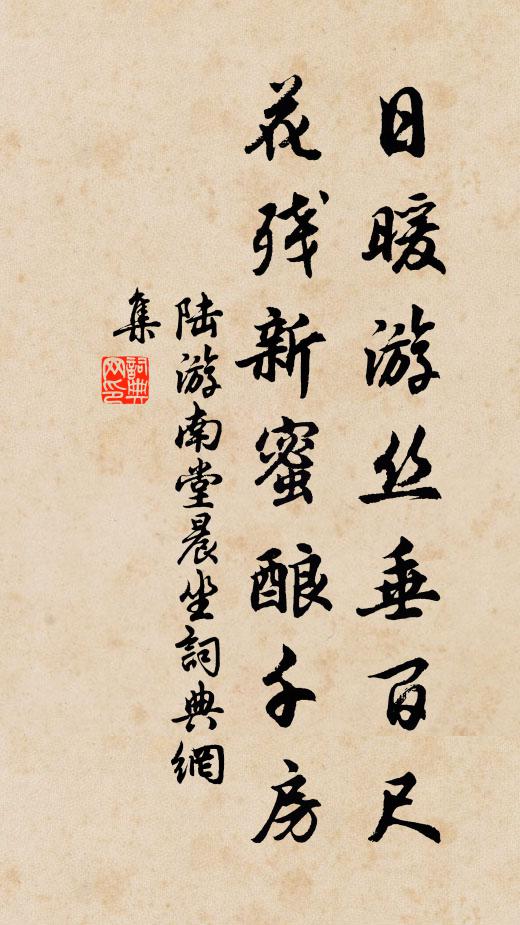 日暖游丝垂百尺
花残新蜜酿千房
陆游南堂晨坐詞典網
集
詞典网印